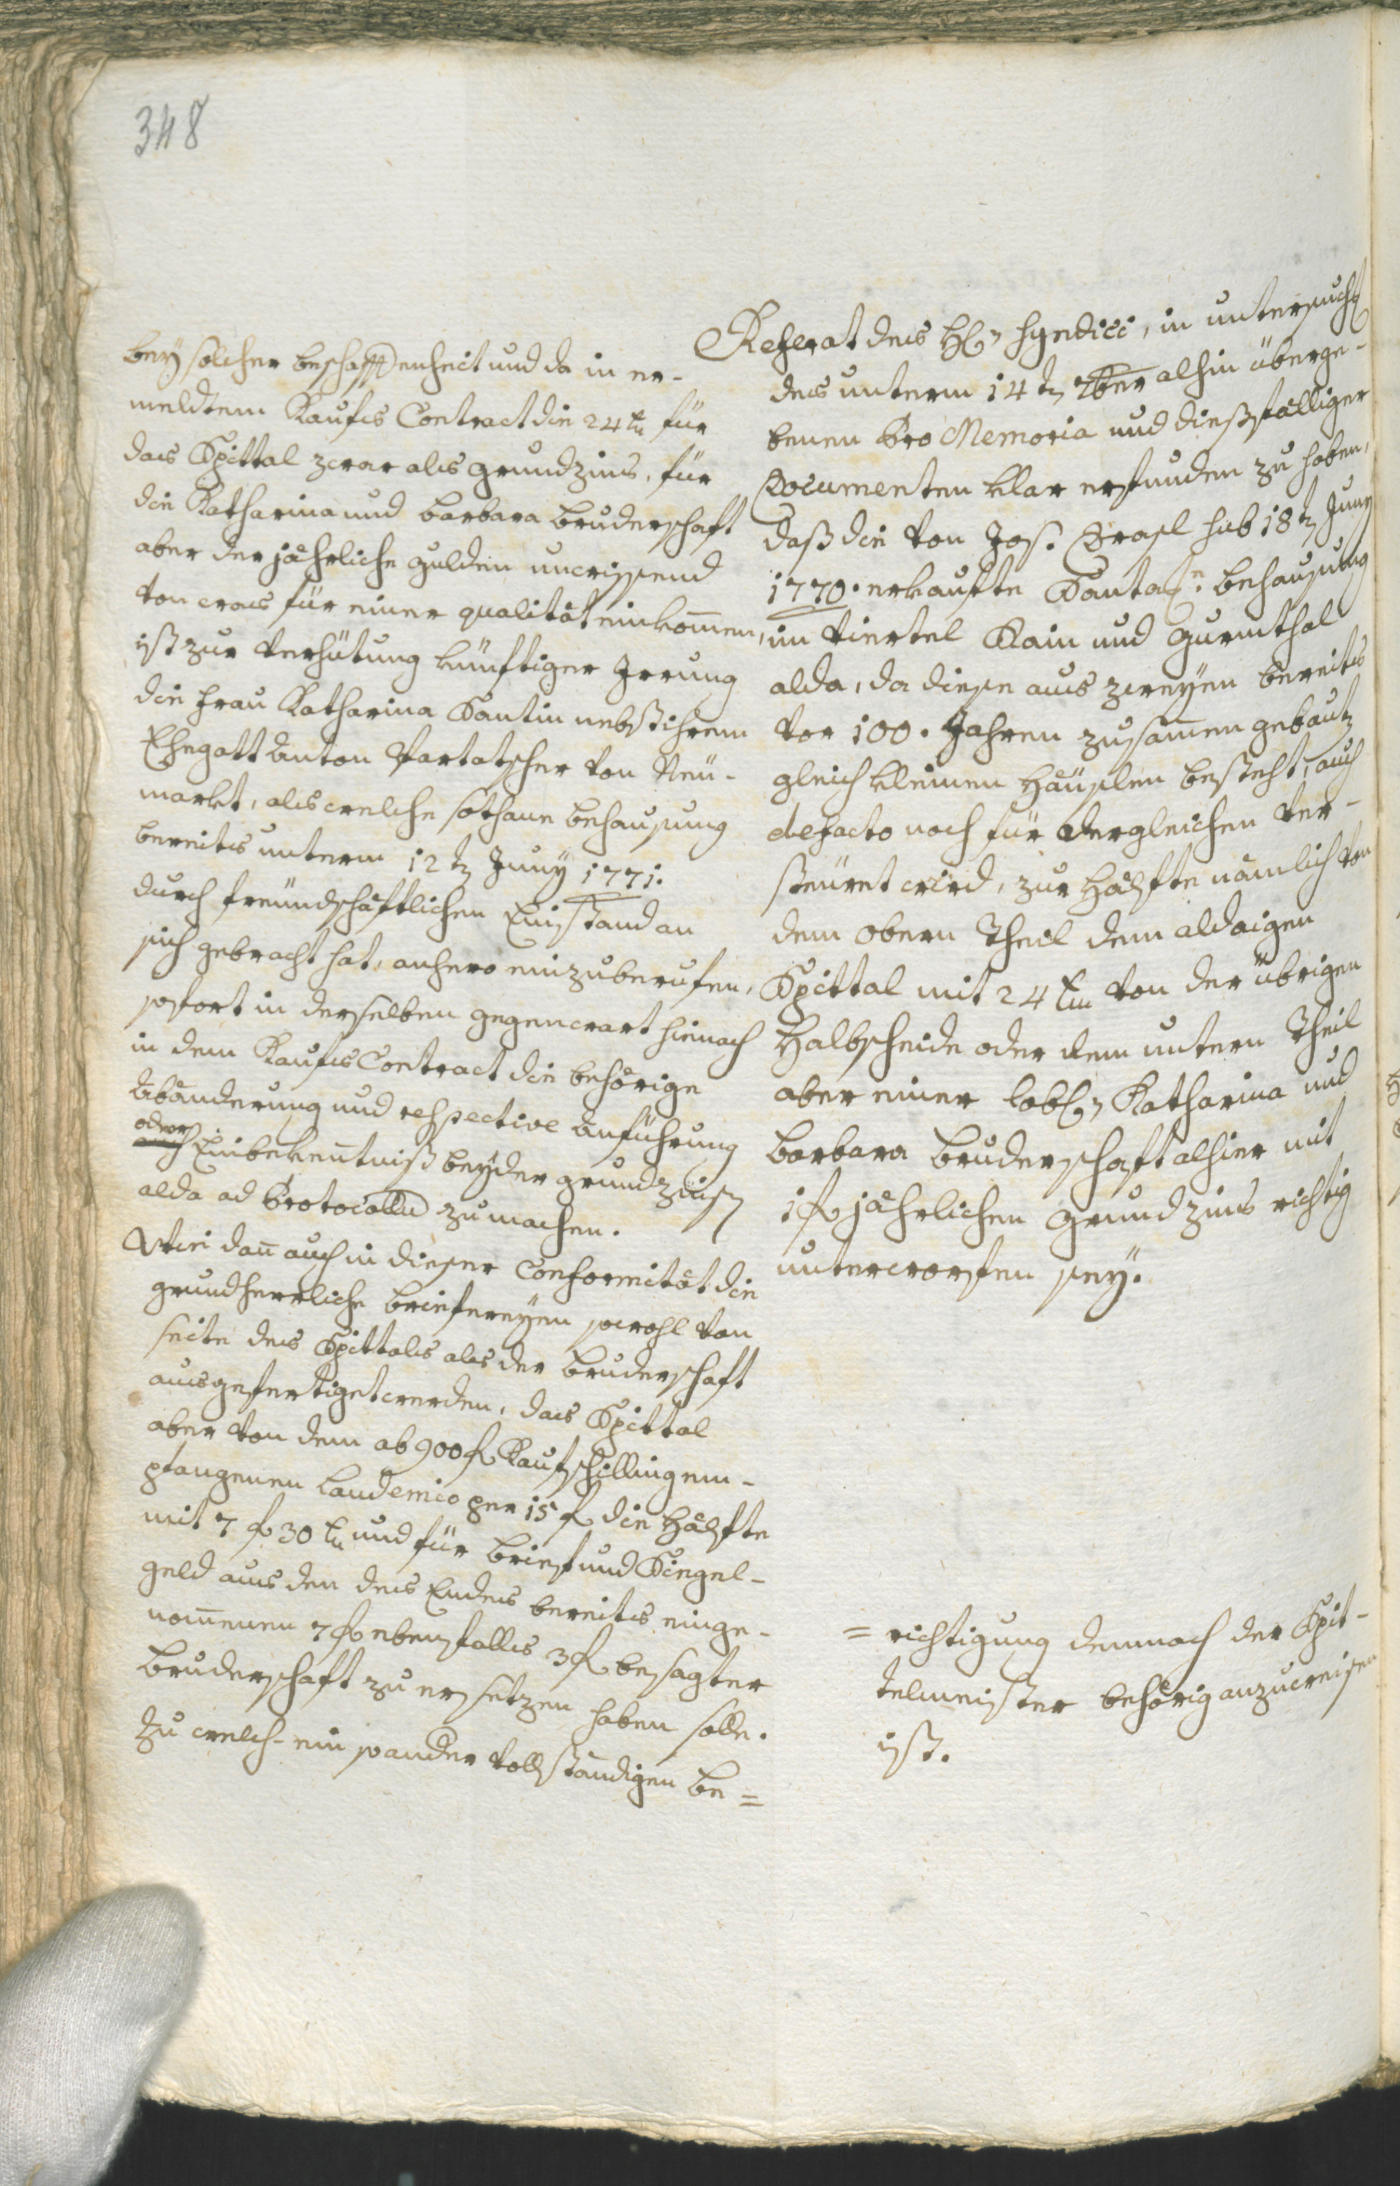 348
Referat des H: Syndici, in untersuchg
des unterm 14t 7ber alhin überge-
benen Pro Memoria und dießfälliger
Documenten klar erfunden zu haben,
daß die von Jos. Grasl sub 18t Juny
1770. erkaufte Santa: Behausung
im Viertel Rain und Gurmthal
alda, da diese aus zweyen bereits
vor 100. Jahren zusamen gebaut
gleich kleinen Häuslen besteht, auch
de facto noch für dergleichen ver-
steuret wird, zur Hälfte nämlich von
dem obern Theil dem aldaigen
Spittal mit 24 xr von der übrigen
Halbscheide oder dem untern Theil
aber einer Löbl: Katharina und
Barbara Bruderschaft alhier mit
1 f jährlichen Grundzins richtig
unterworfen sey.
Bey solcher beschaffenheit und da in er-
meldtem Kaufs Contract die 24 xr für
das Spittal zwar als Grundzins, für
die Katharina und Barbara Bruderschaft
aber der jährliche Gulden unwissend
von was für einer qualität einkommen,
ist zur Verhütung künftiger Irrung
die Frau Katharina Santin nebst ihrem
Ehegatt Anton Partatscher von Neu-
markt, als welche sothane Behausung
bereits unterm 12t Juny 1771.
durch freundschäftlichen Einstand an
sich gebracht hat, anhero einzuberufen,
sofort in derselben gegenwart hienach
in dem Kaufs Contract die behörige
Abänderung und respective Anführung
oder
auch Einbekentniß beyder Grundzinsen
alda ad Protocollu zu machen.
Wie dan auch in dieser Conformität die
grundherrliche Briefereyen sowohl von
seite des Spittals als der Bruderschaft
ausgefertiget werden, das Spittal
aber von dem ab 900 f Kaufschilling em-
pfangenen Laudemio per 15 f die Hälfte
mit 7 f 30 xr und für Brief und Siegel-
geld aus den des Endes bereits einge-
nommenen 7 f ebenfalls 3 f besagter
Bruderschaft zu ersetzen haben solle.
Zu welch-ein so ander vollständigen Be=
=richtigung demnach der Spit-
telmeister behörig anzuweisen
ist.